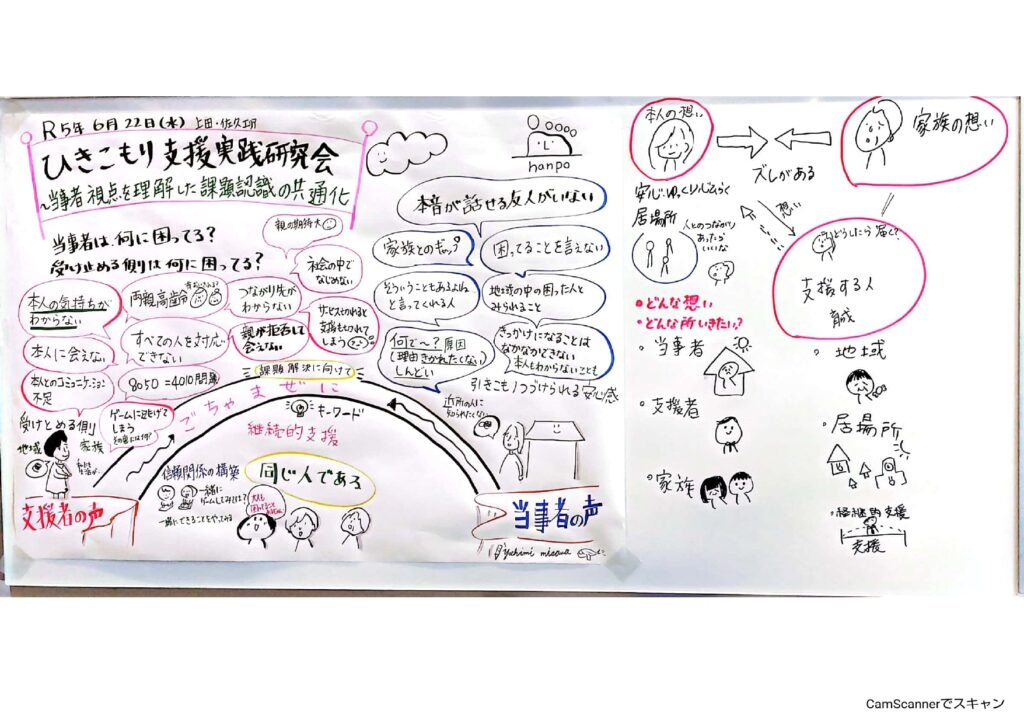 R5年 6月 22日(木) 上田・佐久
ひきこもり支援実践研究会
~当事者視点を理解した課題認識の共通化
hanpo
当事者は、何に困ってる?
受け止める側は何に困ってる?
親の期待大
社会の中で
なじめない
本人の気持ちが
わからない
両親高齢
つながり先が
わからない
サービス切れると
支援も切れて
しまう
本人に会えない
すべての人を対応
できない
親が拒否して
会えない
本人とのコミュニケーション
不足
8050=4010問題
ゲームに逃げて
しまう
受けとめる側
地域
家族
支援者の声
本音が話せる友人がいない
家族とのギャップ
困ってることを言えない
そういうこともあるよね
と言ってくれる人
地域の中の困った人と
みられること
何で~?原因
理由きかれたくない
しんどい
きっかけになることは
なかなかできない
本人もわからないことも
引きこもりつづけられる安心感
近所の人に
知られたくない
課題解決に向けて
ごちゃまぜに
キーワード
継続的支援
信頼関係の構築
同じ人である
一緒に
ゲームしてみては?
一緒にできることをやってみる
当事者の声
yukimi misawa
本人の想い
家族の想い
ズレがある
安心ゆっくり
居場所
人とのつながり
あったら
いいな
想い
どうしたら届く?
支援する人
育成
・どんな想い
・どんな所いきたい?
・当事者
・地域
・支援者
・居場所
・家族
・継続的支援
支援
CamScannerでスキャン